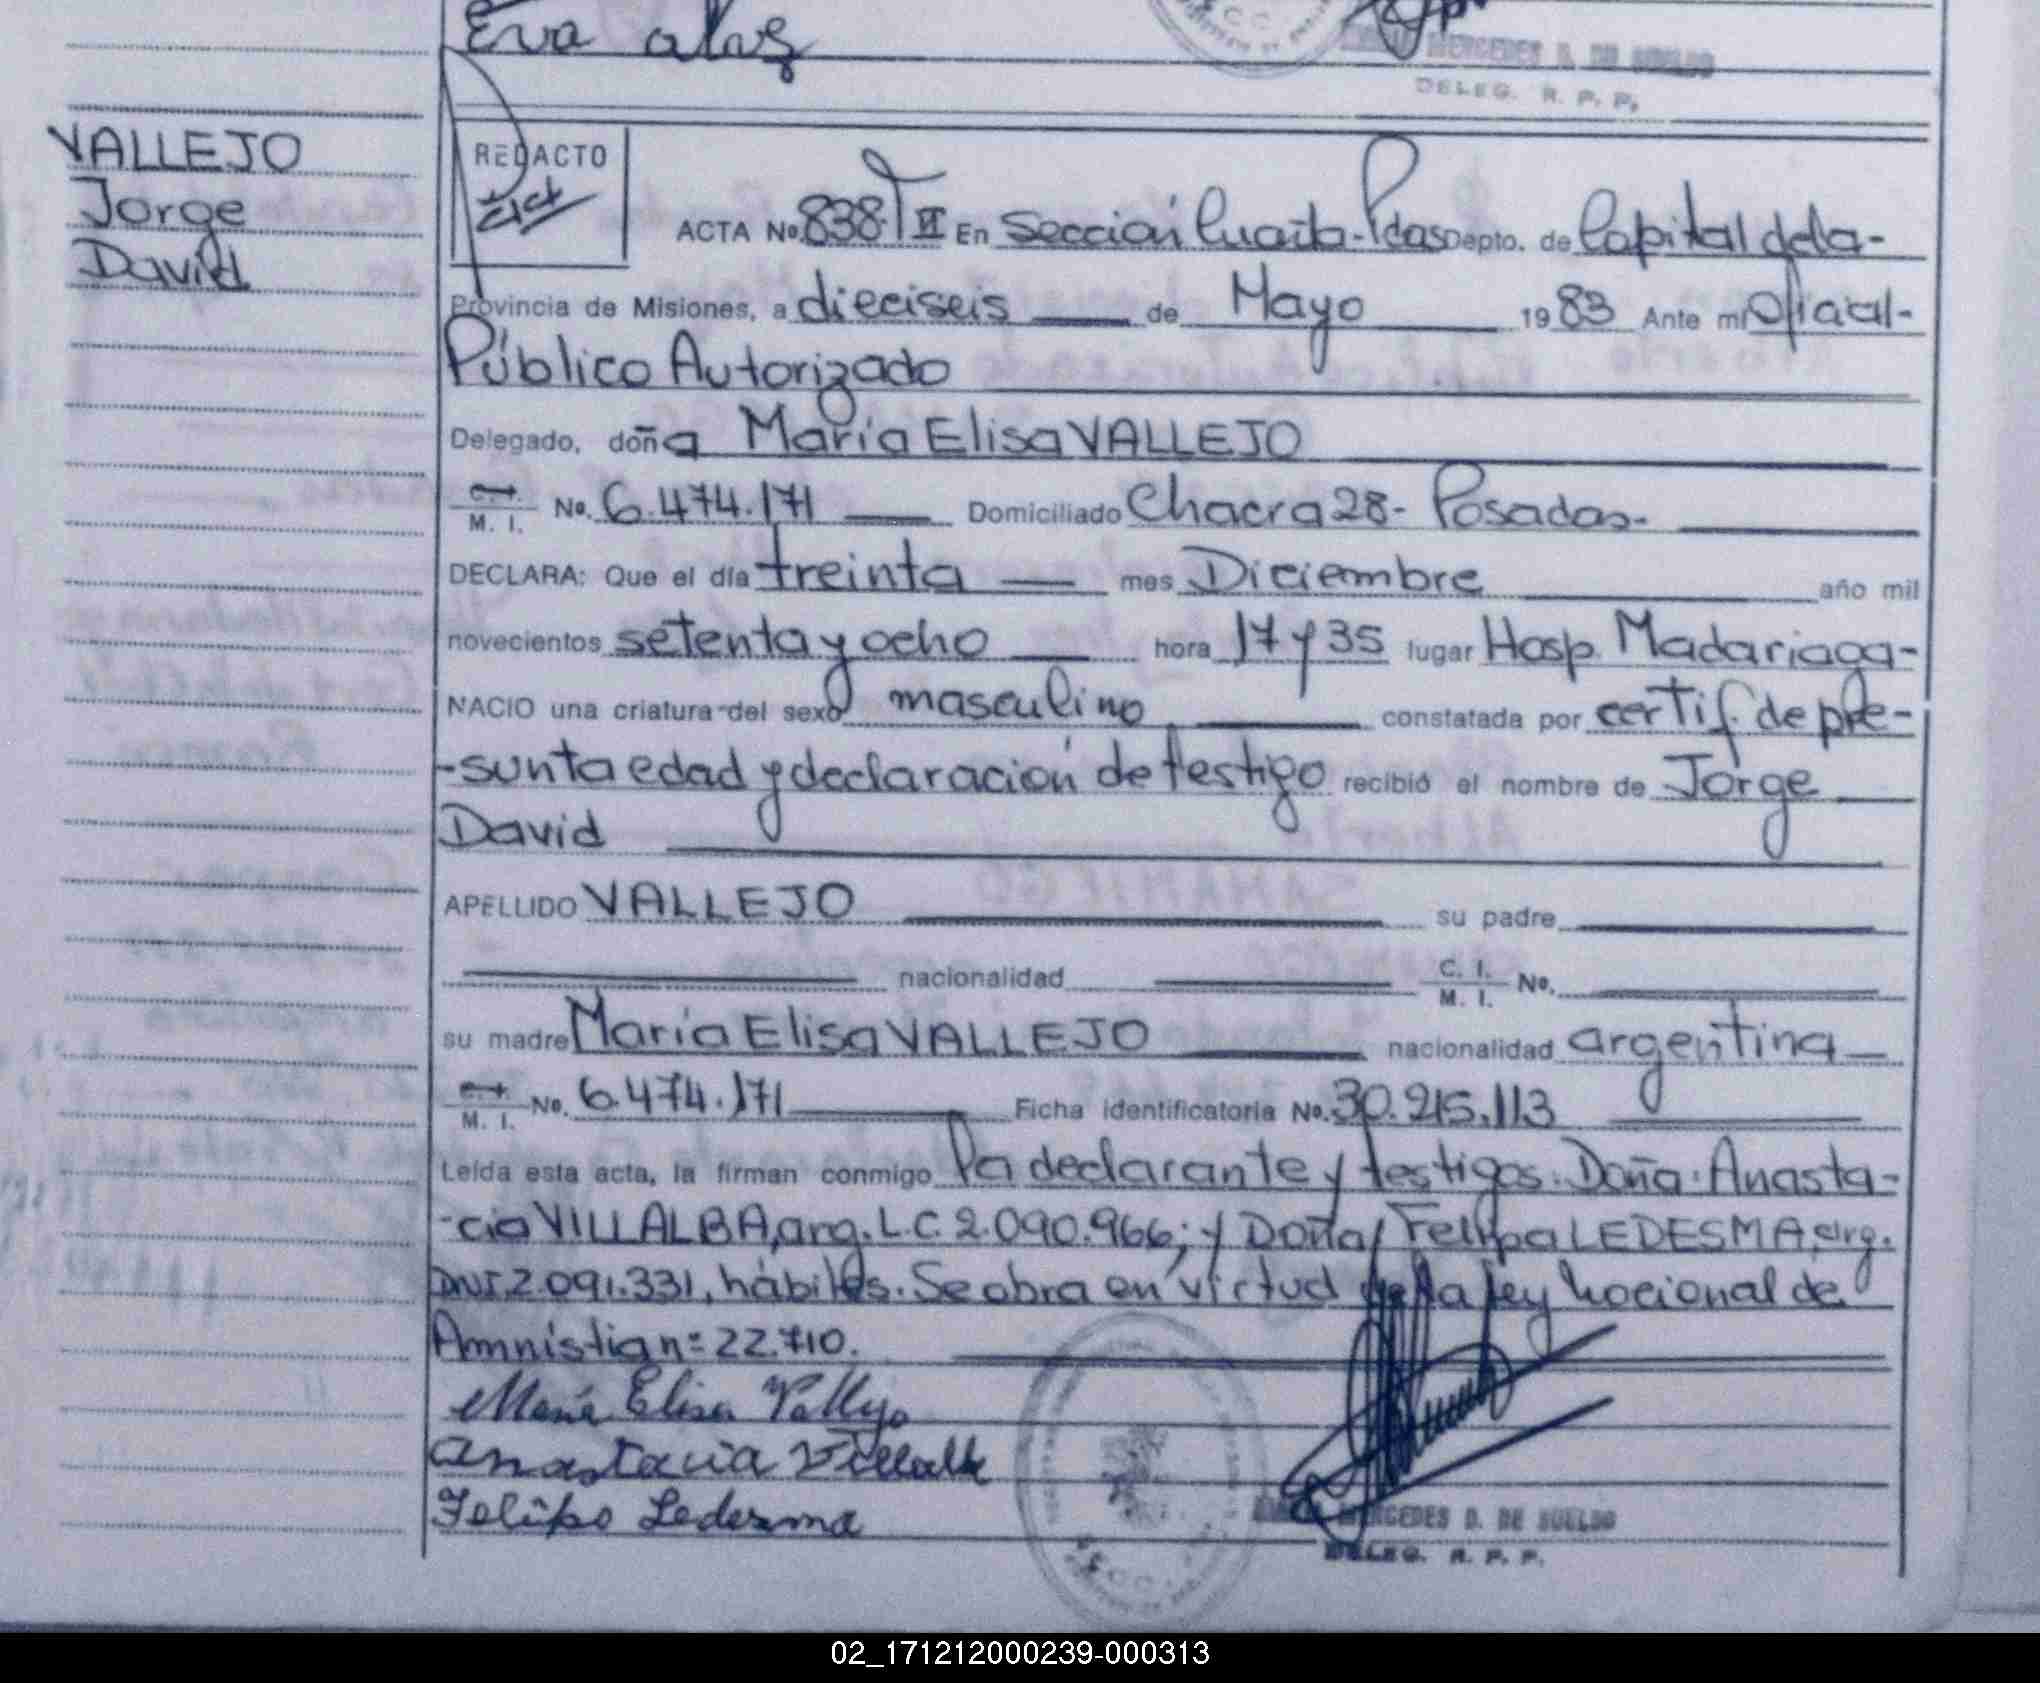 Eva
MERCEDES D. DE SUELDO
DELEG. R. P. P.
VALLEJO
Jorge
David
REDACTO
ACTA No 838 T VI En Sección Cuarta-Pdas Depto. de Capital dela-
Provincia de Misiones, a dieciseis de Mayo 1983 Ante mi Oficial-
Público Autorizado
Delegado, doña María Elisa VALLEJO
M. I. No. 6.474.171 Domiciliado Chacra 28- Posadas-
DECLARA: Que el día treinta mes Diciembre año mil
novecientos setenta y ocho hora 17 y 35 lugar Hosp. Madariaga-
NACIO una criatura del sexo masculino constatada por certif. de pre-
-sunta edad y declaración de testigo recibió el nombre de Jorge
David
APELLIDO VALLEJO su padre
nacionalidad C. I. M. I. No.
su madre María Elisa VALLEJO nacionalidad argentina
M. I. No. 6.474.171 Ficha identificatoria No. 30.215.113
Leída esta acta, la firman conmigo la declarante y testigos. Doña. Anasta-
-cia VILLALBA, arg. L.C. 2.090.966; y Doña Felipa LEDESMA, arg.
DNI. 2.091.331, hábiles. Se obra en virtud de la ley nacional de
Amnistia n= 22.710.
María Elisa Vallejo
Anastacia Villalba
Felipa Ledesma
MERCEDES D. DE SUELDO
DELEG. R. P. P.
02_171212000239-000313